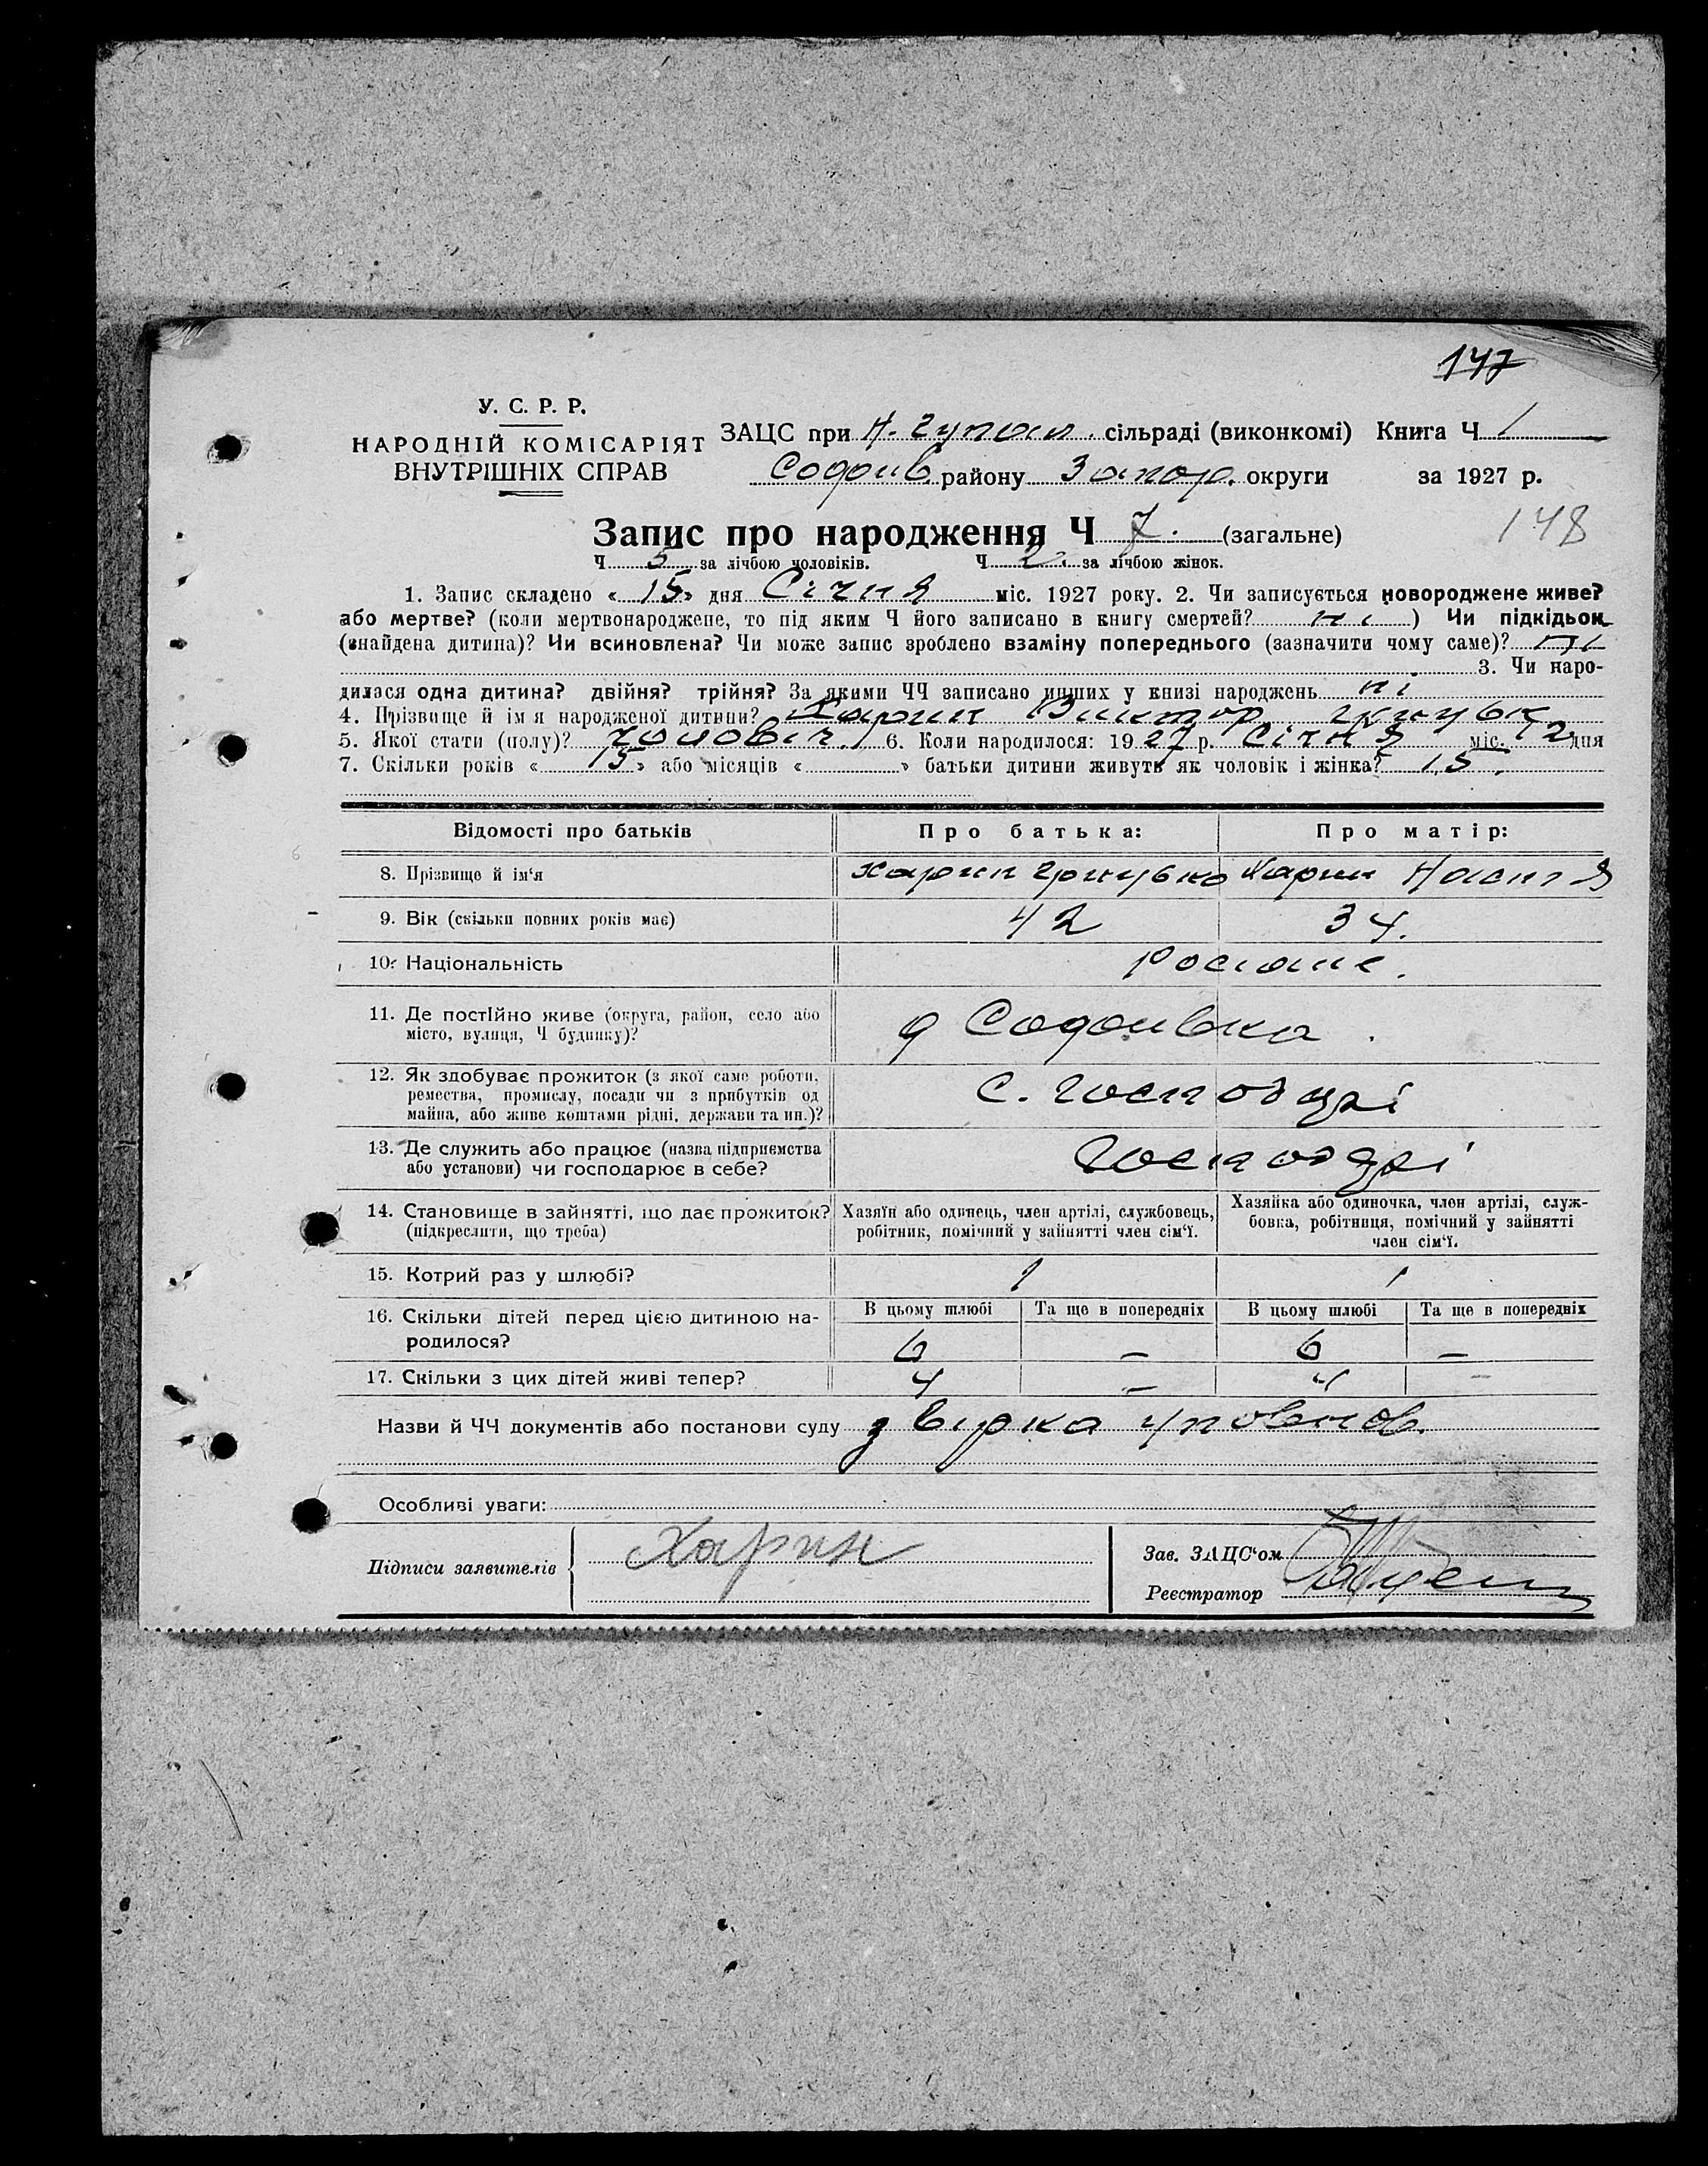 147
У. С. Р. Р.
НАРОДНІЙ КОМІСАРІЯТ
ВНУТРІШНІХ СПРАВ
ЗАЦС при Н. сільраді (виконкомі) Книга Ч 1
району Запор. округи за 1927 р.
Запис про народження Ч 7. (загальне)
148
Ч 5 за лічбою чоловіків. Ч 2 за лічбою жінок.
1. Запис складено « 15 » дня Січня міс. 1927 року. 2. Чи записується новороджене живе?
або мертве? (коли мертвонароджене, то під яким Ч його записано в книгу смертей? ні ) Чи підкідьок
(знайдена дитина)? Чи всиновлена? Чи може запис зроблено взаміну попереднього (зазначити чому саме)? ні
3. Чи наро-
дилася одна дитина? двійня? трійня? За якими ЧЧ записано инших у книзі народжень ні
4. Прізвище й ім'я народженої дитини? Харин Виктор
5. Якої стати (полу)? чоловіч. 6. Коли народилося: 1927 р. Січня міс. 12 дня
7. Скільки років « 15 » або місяців « » батьки дитини живуть як чоловік і жінка? 15.
Відомості про батьків Про батька: Про матір:
8. Прізвище й ім'я Харин Харин
9. Вік (скільки повних років має) 42 34.
10. Національність Росіяне.
11. Де постійно живе (округа, район, село або
місто, вулиця, Ч будинку)?
12. Як здобуває прожиток (з якої саме роботи,
ремества, промислу, посади чи з прибутків од
майна, або живе коштами рідні, держави та ин.)?
С.
13. Де служить або працює (назва підприємства
або установи) чи господарює в себе?
14. Становище в зайнятті, що дає прожиток?
(підкреслити, що треба)
Хазяїн або одинець, член артілі, службовець,
робітник, помічний у зайнятті член сім'ї.
Хазяйка або одиночка, член артілі, служ-
бовка, робітниця, помічний у зайнятті
член сім'ї.
15. Котрий раз у шлюбі? 1 1
16. Скільки дітей перед цією дитиною на-
родилося?
В цьому шлюбі Та ще в попередніх В цьому шлюбі Та ще в попередніх
6 — 6 —
17. Скільки з цих дітей живі тепер? 4 — 4 —
Назви й ЧЧ документів або постанови суду
Особливі уваги:
Підписи заявителів Харин
Зав. ЗАЦС'ом
Реєстратор